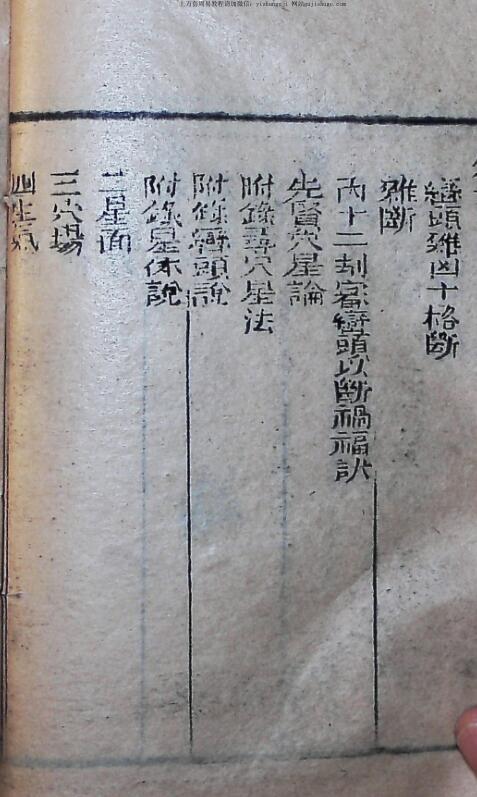 上万套周易教程请加微信：yizhangsji 网站gujishuge.com
巒頭雜凶十格斷
雜斷
丙十二刼審巒頭以斷禍福訣
先賢穴星論
附錄尋穴星法
附錄巒頭說
附錄星体說
二星面
三穴場
四生氣